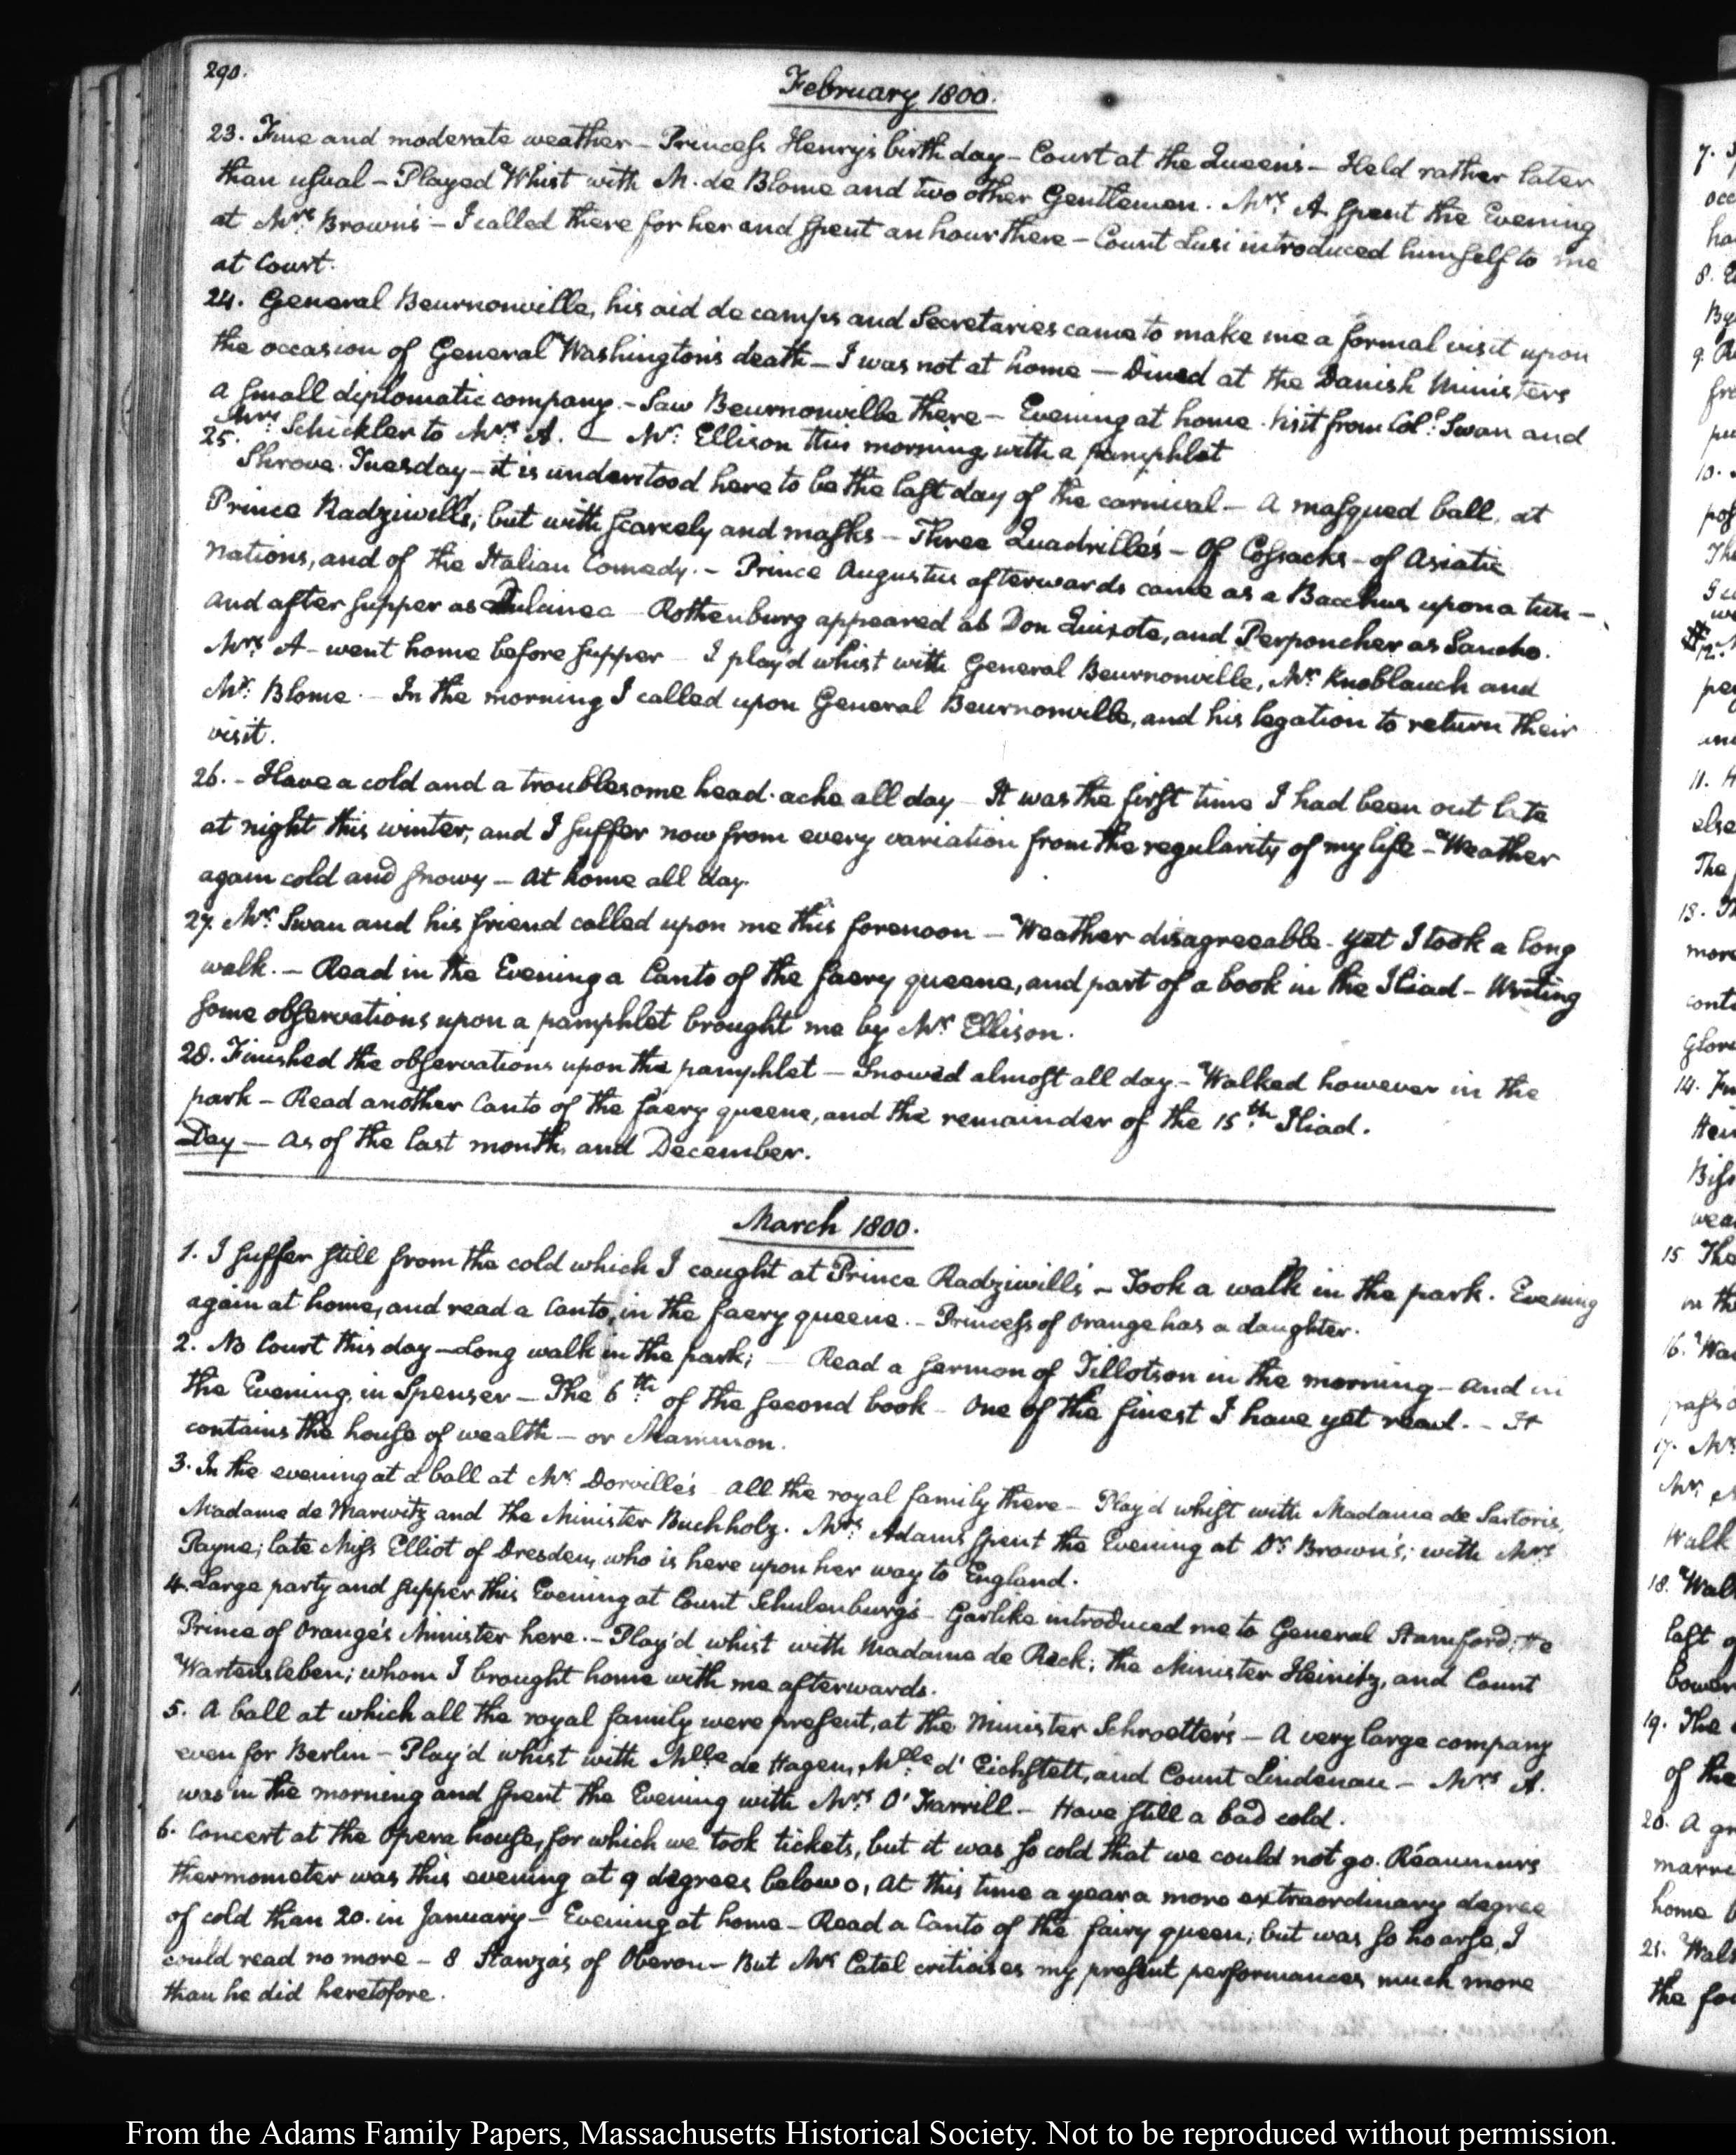 290.
February 1800.
23. Fine and moderate weather – Princess Henry's birth day – Court at the Queen's – Held rather later
than usual – Played Whist with M. de Blome and two other Gentlemen. Mrs. A. spent the Evening
at Mrs. Brown's – I called there for her and spent an hour there – Count Lusi introduced himself to me
at Court.
24. General Beurnonville, his aid de camps and Secretaries came to make me a formal visit upon
the occasion of General Washington's death – I was not at home – Dined at the Danish Ministers
a small diplomatic company – Saw Beurnonville there – Evening at home. Visit from Col. Swan and
Mrs. Schickler to Mrs. A. – Mr. Ellison this morning with a pamphlet
25. Shrove Tuesday – it is understood here to be the last day of the carnival – A masqued ball at
Prince Radziwill's; but with scarcely and masks – Three Quadrille's – Of Cossacks – of Asiatic
Nations, and of the Italian Comedy. – Prince Augustus afterwards came as a Bacchus upon a tun –
and after supper as Dulcinea – Rothenburg appeared as Don Quixote, and Perponcher as Sancho.
Mrs. A – went home before supper – I play'd whist with General Beurnonville, Mr. Knoblauch and
Mr. Blome. – In the morning I called upon General Beurnonville, and his legation to return their
visit.
26. – Have a cold and a troublesome head-ache all day – It was the first time I had been out late
at night this winter, and I suffer now from every variation from the regularity of my life – Weather
again cold and snowy – At home all day.
27. Mr. Swan and his friend called upon me this forenoon – Weather disagreeable – yet I took a long
walk. – Read in the Evening a Canto of the faery queene, and part of a book in the Iliad – Writing
some observations upon a pamphlet brought me by Mr. Ellison.
28. Finished the observations upon the pamphlet – Snowed almost all day – Walked however in the
park – Read another Canto of the faery queene, and the remainder of the 15th. Iliad.
Day – As of the last month, and December.
March 1800.
1. I suffer still from the cold which I caught at Prince Radziwill's – Took a walk in the park. Evening
again at home, and read a Canto, in the faery queene. – Princess of Orange has a daughter.
2. No Court this day – Long walk in the park; – Read a sermon of Tillotson in the morning – and in
the Evening, in Spenser – The 6th. of the second book – One of the finest I have yet read. – It
contains the house of wealth – or Mammon.
3. In the evening at a ball at Mr. Dorville's – All the royal family there – Play'd whist with Madame de Sartoris,
Madame de Marwitz and the Minister Buchholz. Mrs. Adams spent the Evening at Dr. Brown's; with Mrs
Payne; late Miss Elliot of Dresden, who is here upon her way to England.
4. Large party and supper this Evening at Count Schulenburg's – Garlike introduced me to General Stamford; the
Prince of Orange's Minister here. – Play'd whist with Madame de Reck; the Minister Heinitz, and Count
Wartensleben; whom I brought home with me afterwards.
5. A ball at which all the royal family were present, at the Minister Schroetter's – A very large company
even for Berlin – Play'd whist with Mlle. de Hagen, Mlle. d'Eichstett, and Count Lindenau – Mrs. A.
was in the morning and spent the Evening with Mrs. O'Farrill – Have still a bad cold.
6. Concert at the Opera house, for which we took tickets, but it was so cold that we could not go. Réaumurs
thermometer was this evening at 9 degrees below 0, At this time a year a more extraordinary degree
of cold than 20. in January – Evening at home – Read a Canto of the fairy queen; but was so hoarse, I
could read no more – 8 Stanza's of Oberon – But Mr. Catel criticises my present performances much more
than he did heretofore.
From the Adams Family Papers, Massachusetts Historical Society. Not to be reproduced without permission.